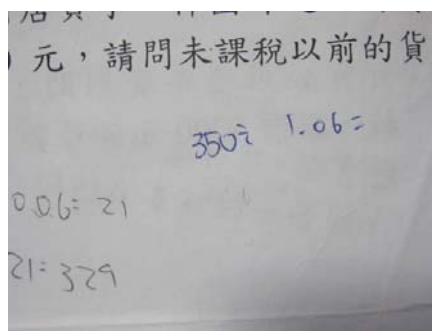 元，請問未課稅以前的貨
350÷ 1.06=
0.06= 21
21= 329